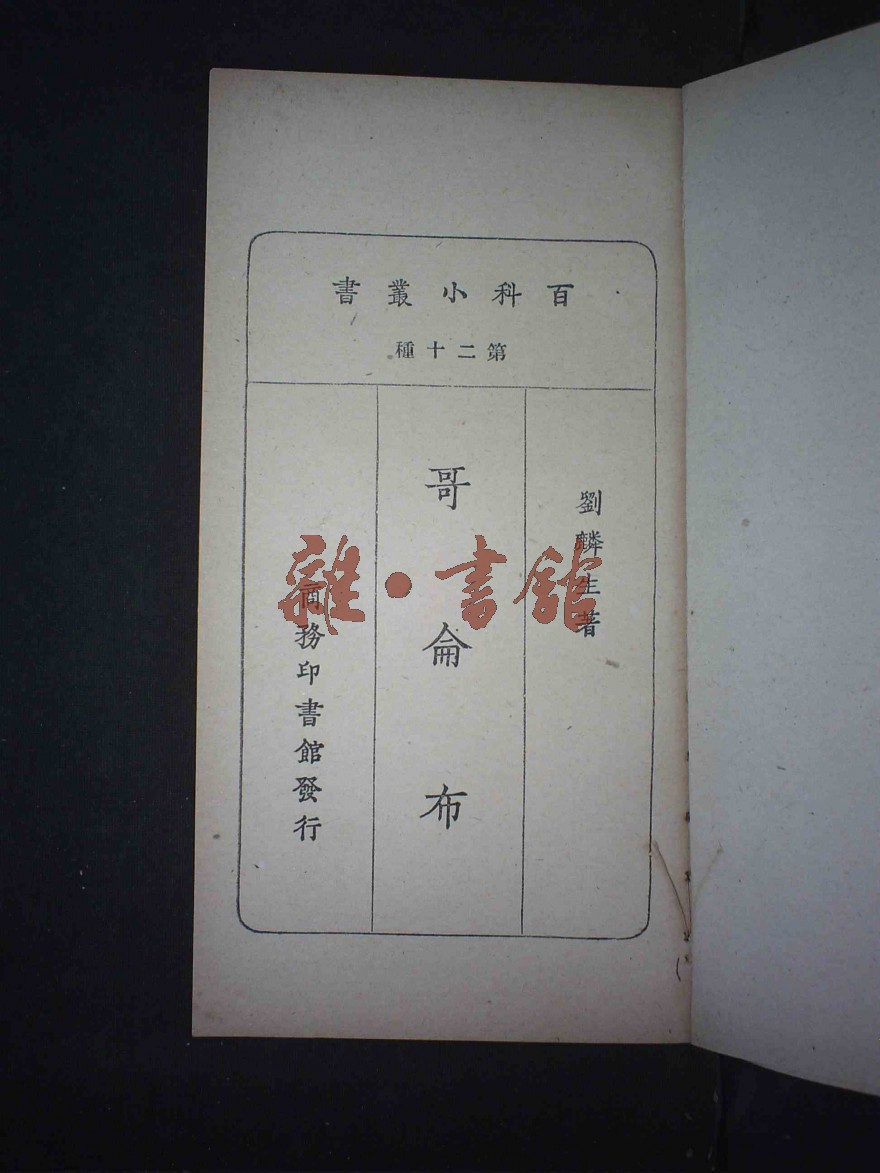 百科小叢書
第二十種
劉麟生著
哥侖布
商務印書館發行
雜•書館